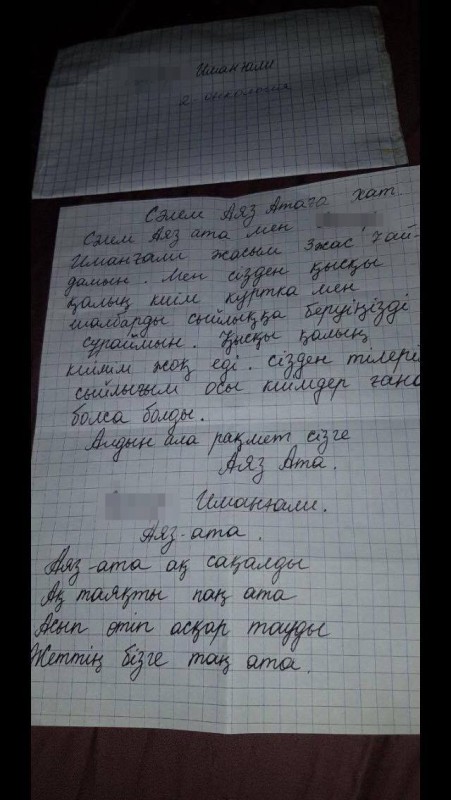 Иманғали
я онкология
Сәлем Аяз Атаға хат
Сәлем Аяз ата мен
Иманғали жасым 3 жас 7 ай-
дамын. Мен сізден қысқы
қалың киім куртка мен
шалбарды сыйлыққа беруіңізді
сұраймын. Қысқы қалың
киімім жоқ еді. сізден тілері
сыйлығым осы киімдер ғана
болса болды.
Алдын ала рақмет сізге
Аяз Ата.
Иманғали.
Аяз-ата.
Аяз-ата ақ сақалды
Ақ таяқты паң ата
Асып өтіп асқар тауды
Жеттің бізге таң ата.